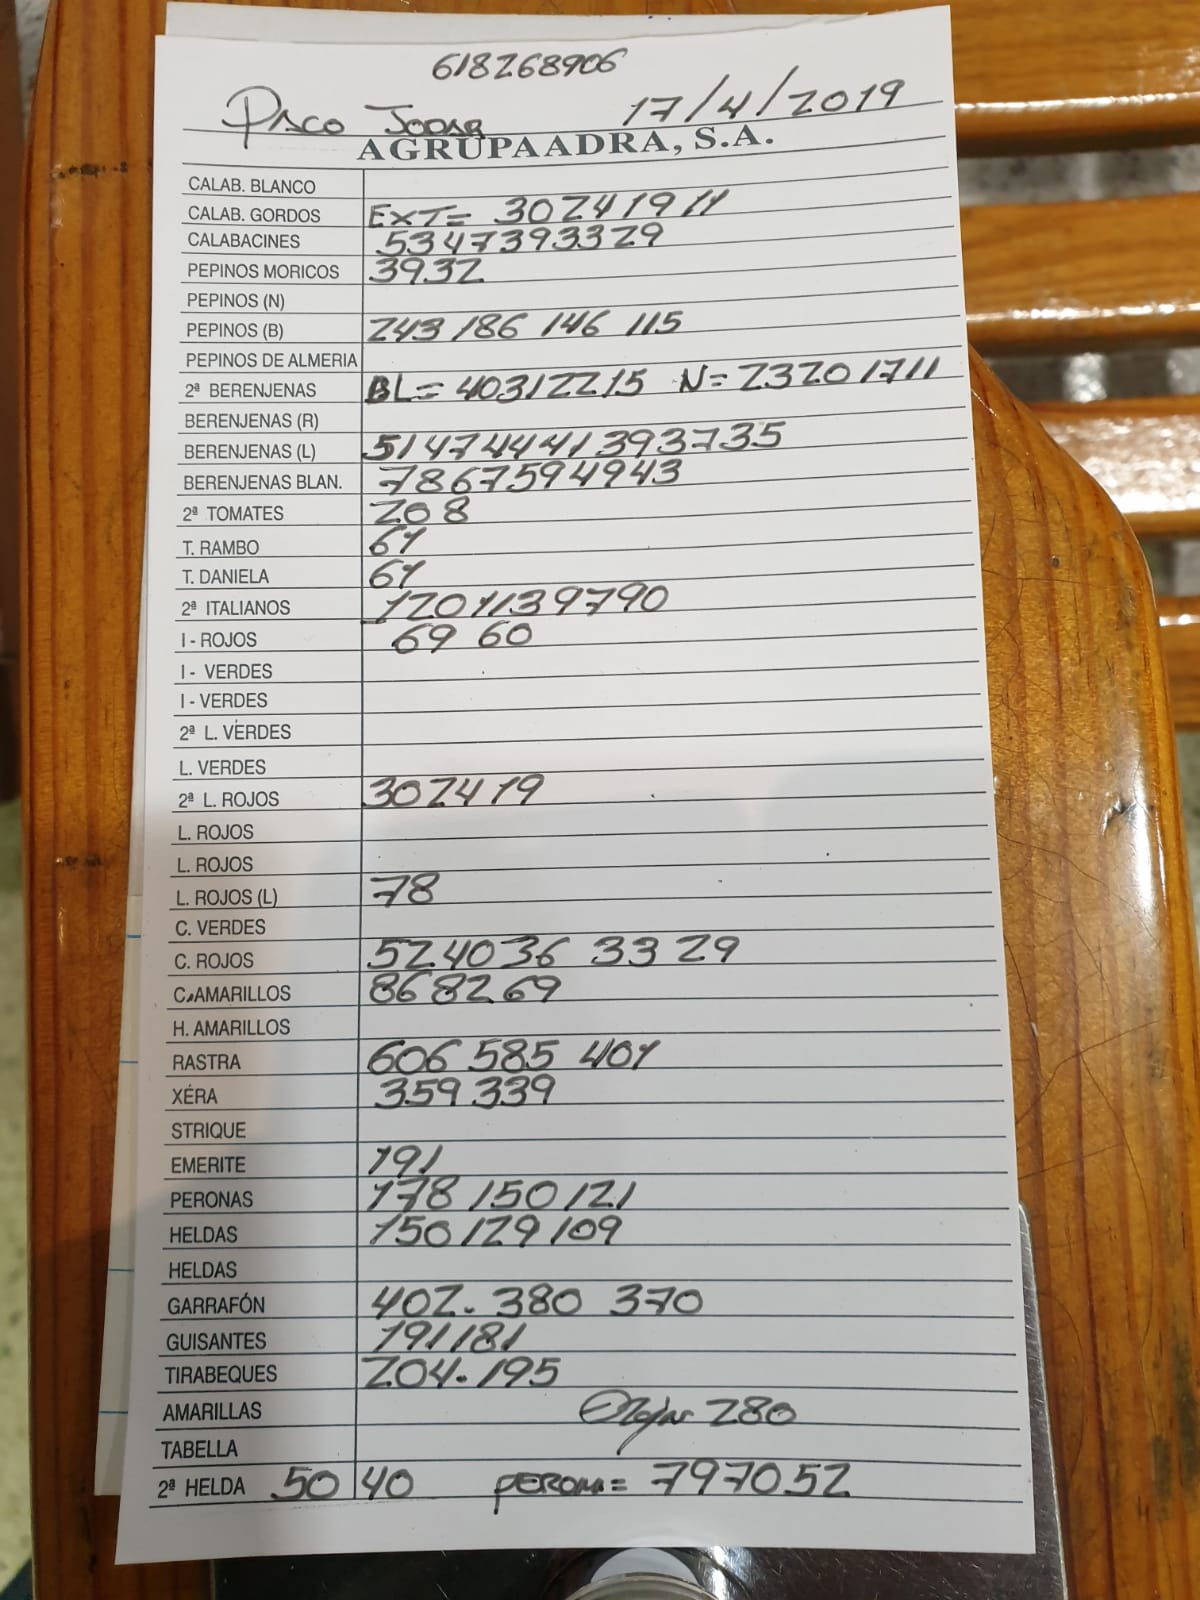 618268906
PACO JODAR 17/4/2019
AGRUPAADRA, S.A.
CALAB. BLANCO
CALAB. GORDOS EXT= 30241911
CALABACINES 5347393329
PEPINOS MORICOS 3932
PEPINOS (N)
PEPINOS (B) 243 186 146 115
PEPINOS DE ALMERIA
2ª BERENJENAS BL= 40312215 N= 23201711
BERENJENAS (R)
BERENJENAS (L) 51474441393735
BERENJENAS BLAN. 78675949 43
2ª TOMATES 208
T. RAMBO 61
T. DANIELA 61
2ª ITALIANOS 1201139790
I - ROJOS 69 60
I - VERDES
I - VERDES
2ª L. VERDES
L. VERDES
2ª L. ROJOS 302419
L. ROJOS
L. ROJOS
L. ROJOS (L) 78
C. VERDES
C. ROJOS 524036 33 29
C. AMARILLOS 868269
H. AMARILLOS
RASTRA 606 585 401
XÉRA 359 339
STRIQUE
EMERITE 191
PERONAS 178 150 121
HELDAS 150 129 109
HELDAS
GARRAFÓN 402. 380 370
GUISANTES 191 181
TIRABEQUES 204. 195
AMARILLAS 280
TABELLA
2ª HELDA 50 40 PERONA= 797052